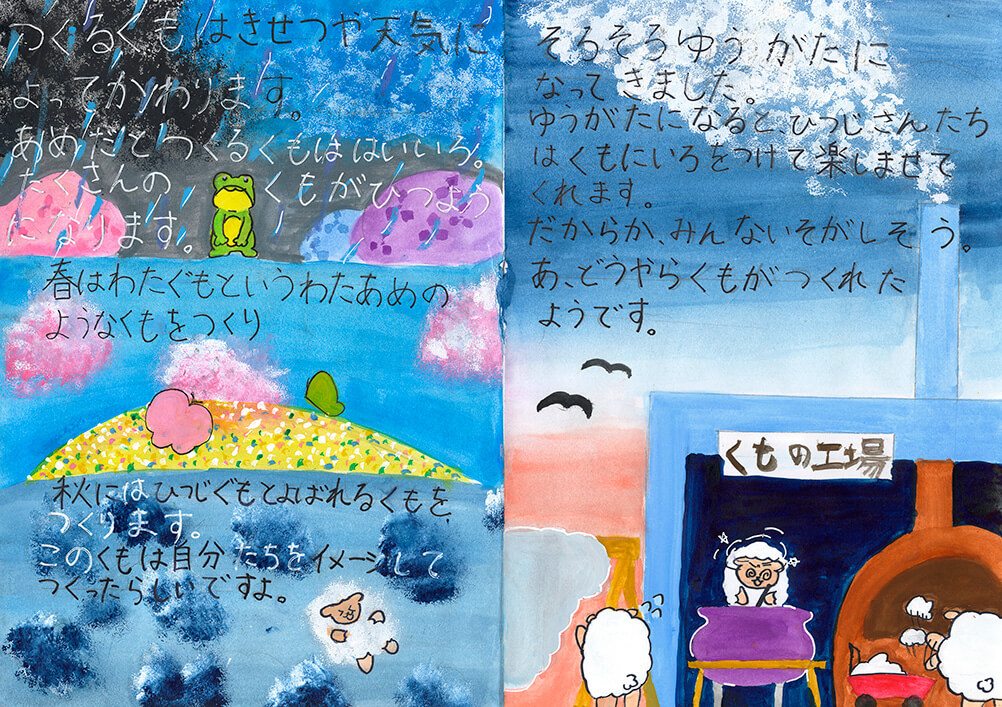 つくるくもはきせつや天気に
よってかわります。
あめだとつくるくもははいいろ。
たくさんの くもがひつよう
になります。
春はわたぐもというわたあめの
ようなくもをつくり
秋にはひつじぐもとよばれるくもを、
つくります。
このくもは自分たちをイメージして
つくったらしいですよ。
そろそろゆうがたに
なってきました。
ゆうがたになると、ひつじさんたち
はくもにいろをつけて楽しませて
くれます。
だからか、みんないそがしそう。
あ、どうやらくもがつくれた
ようです。
くもの工場